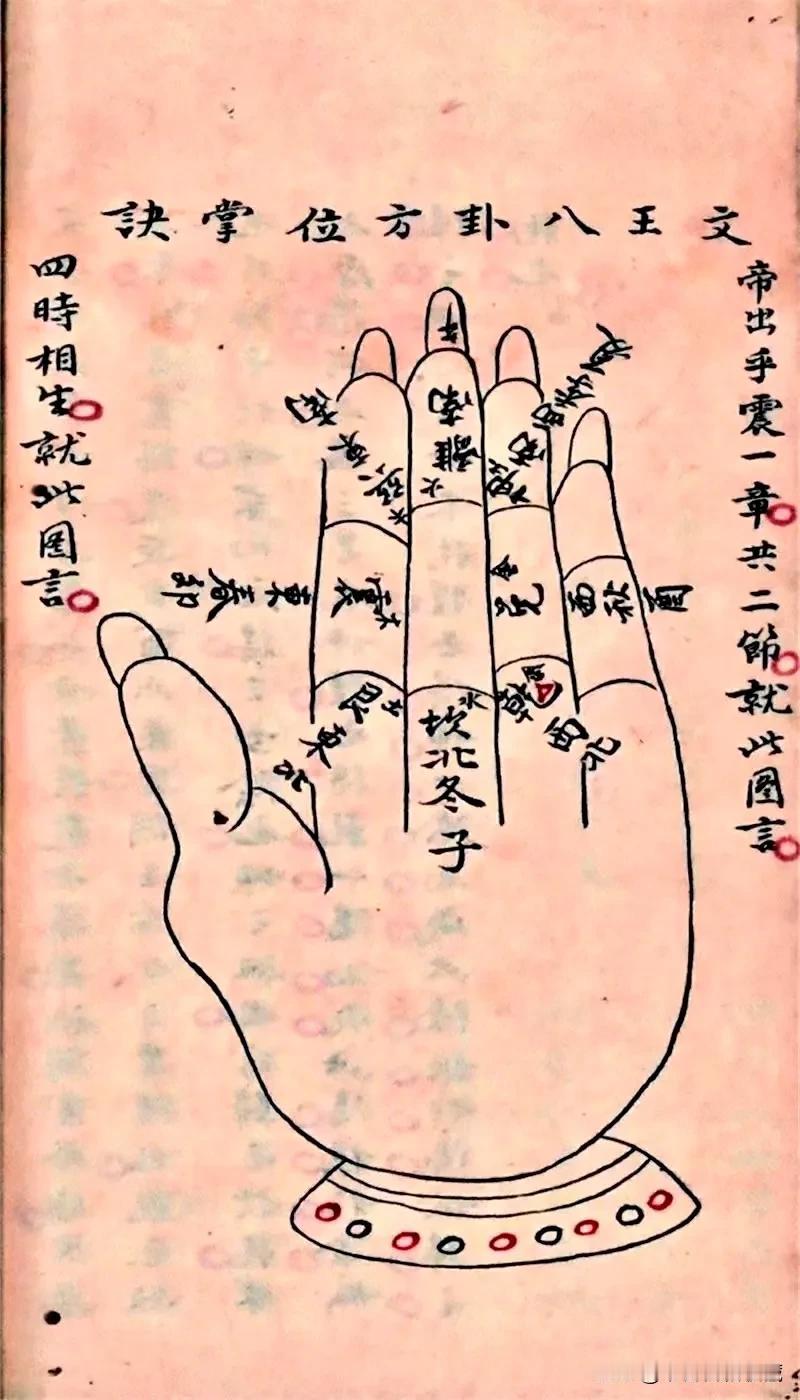 文王八卦方位掌訣
帝出乎震一章共二節就此圖言
四時相生就此圖言
午
南離火
南東巽木
西南坤
卯春東
震木
兌金
西秋
艮土
東北
坎水北冬子
乾
西北